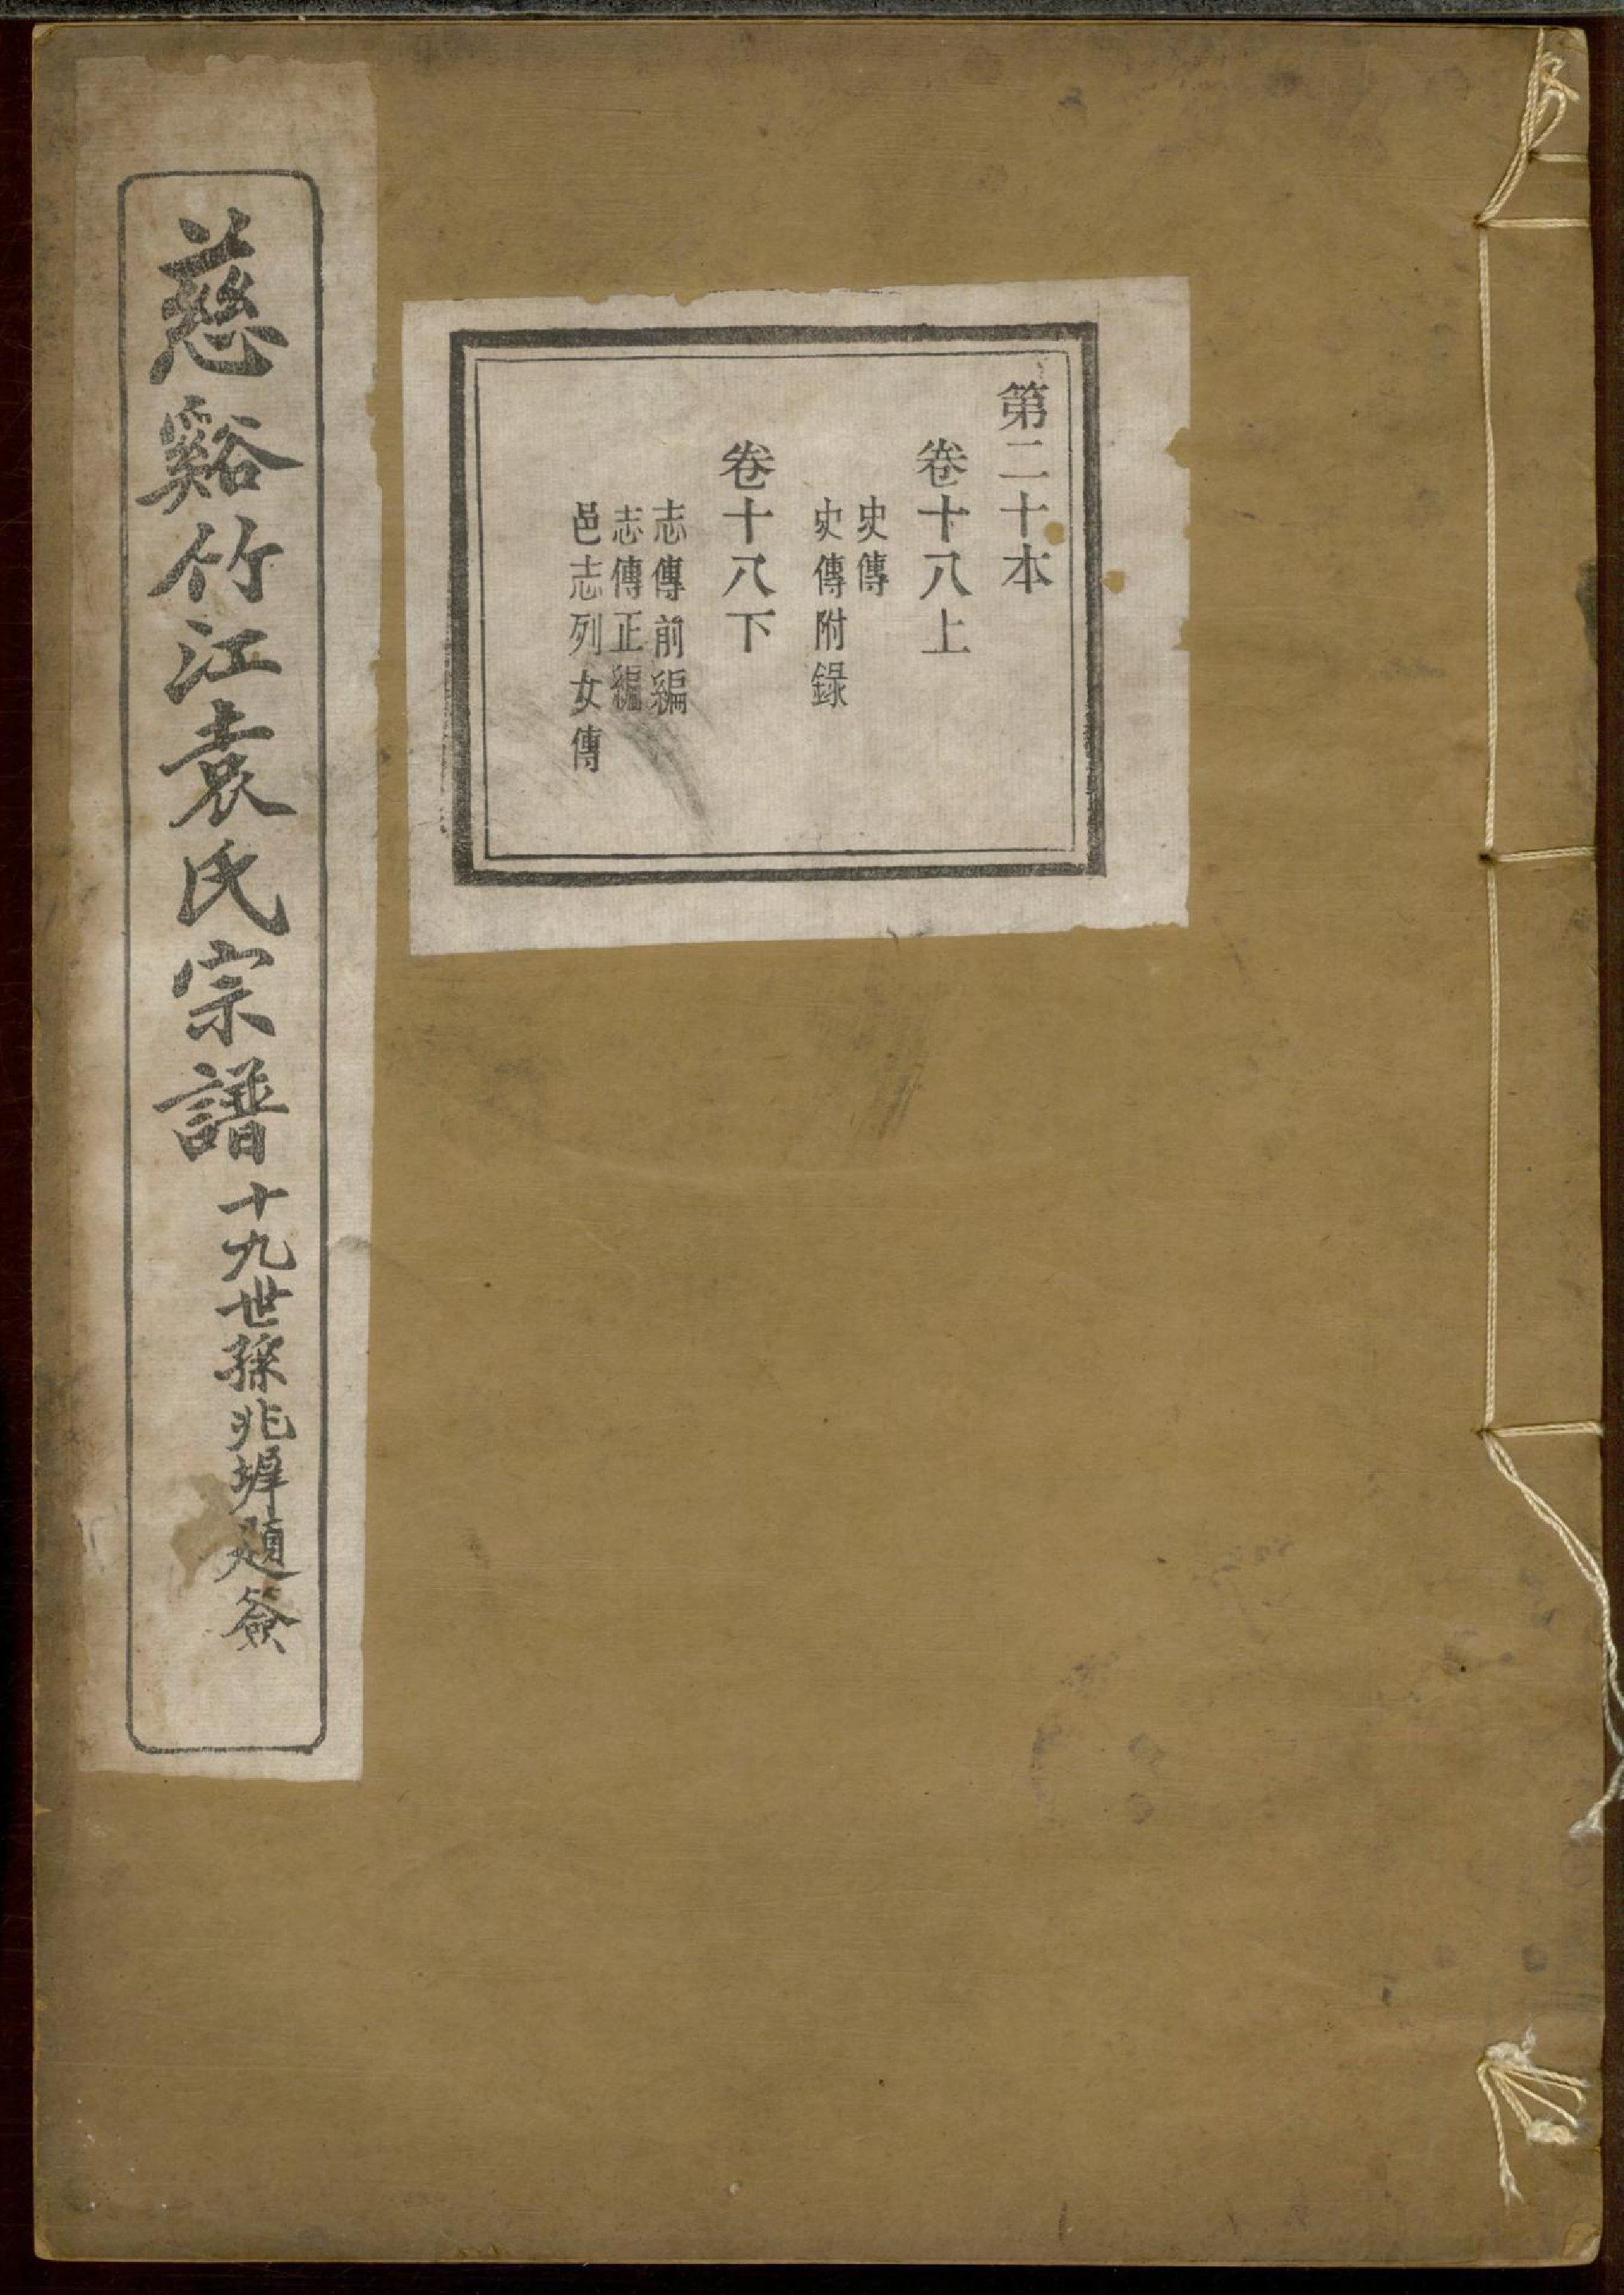 第二十本
卷十八上
史傳
史傳附錄
卷十八下
志傳前編
志傳正編
邑志列女傳
慈谿竹江袁氏宗譜
十九世孫兆墀題簽